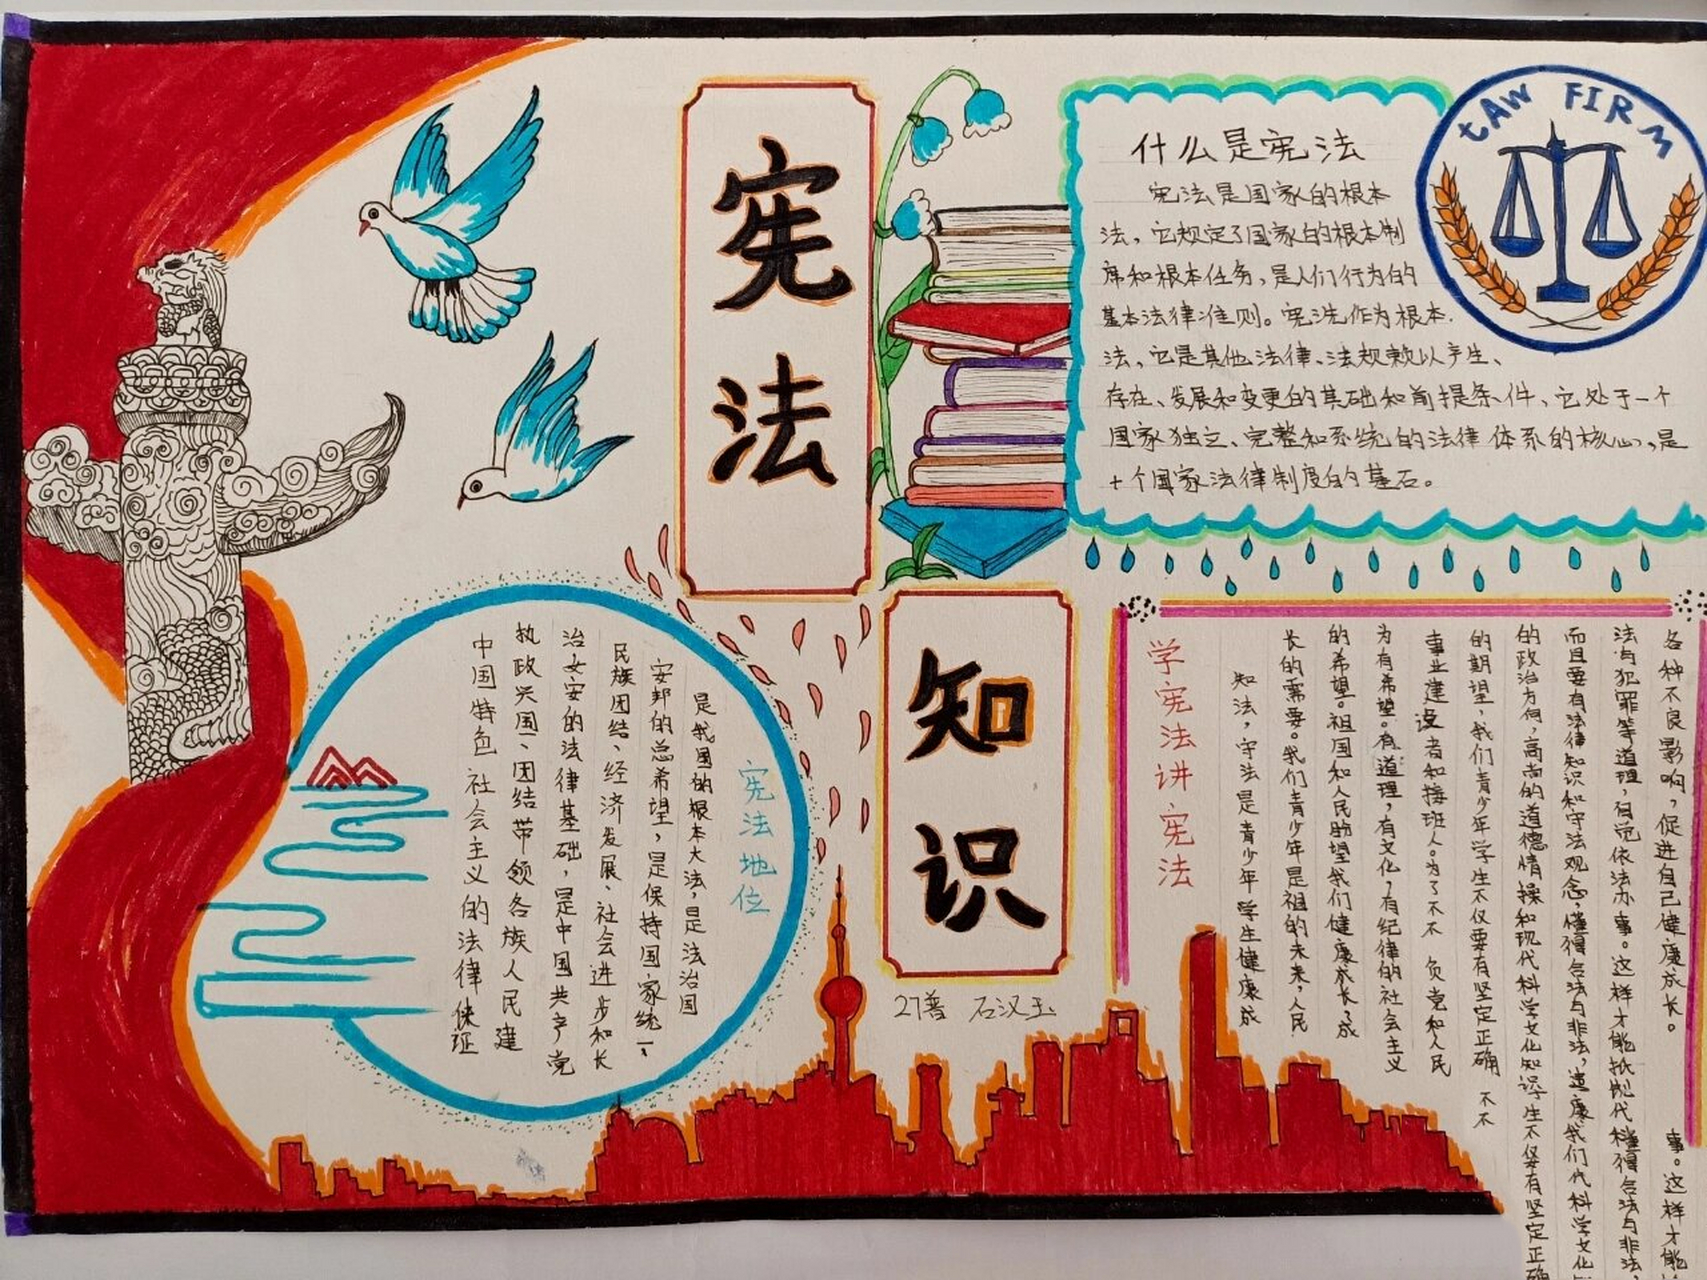 宪法
知识
27普 石汉玉
LAW FIRM
什么是宪法
宪法是国家的根本
法，它规定了国家的根本制
席和根本任务，是人们行为的
基本法律准则。宪法作为根本
法，它是其他法律、法规赖以产生、
存在、发展和变更的基础和前提条件、它处于一个
国家独立、完整和系统的法律体系的核心，是
十个国家法律制度的基石。
宪法地位
是我国的根本大法，是法治国
安邦的总希望，是保持国家统一、
民族团结、经济发展、社会进步和长
治女安的法律基础，是中国共产党
执政兴国、团结带领各族人民建
中国特色社会主义的法律保证
学宪法讲宪法
知法，守法是青少年学生健康成
长的需要。我们青少年是祖的未来，人民
的希望。祖国和人民盼望我们健康成长了成
为有希望。有道理，有文化，有纪律的社会主义
事业建设者和接班人。为了不不 负党和人民
的期望，我们青少年学生不仅要有坚定正确 不不
的政治方向，高尚的道德情操和现代科学文化知识学生不仅有坚定正确
而且要有法律知识和守法观念，懂得合法与非法，遵康我们代科学文化
法与犯罪等道理，自觉依法办事。这样才能抵制代懂得合法与非法
各种不良影响，促进自己健康成长。 事。这样才能